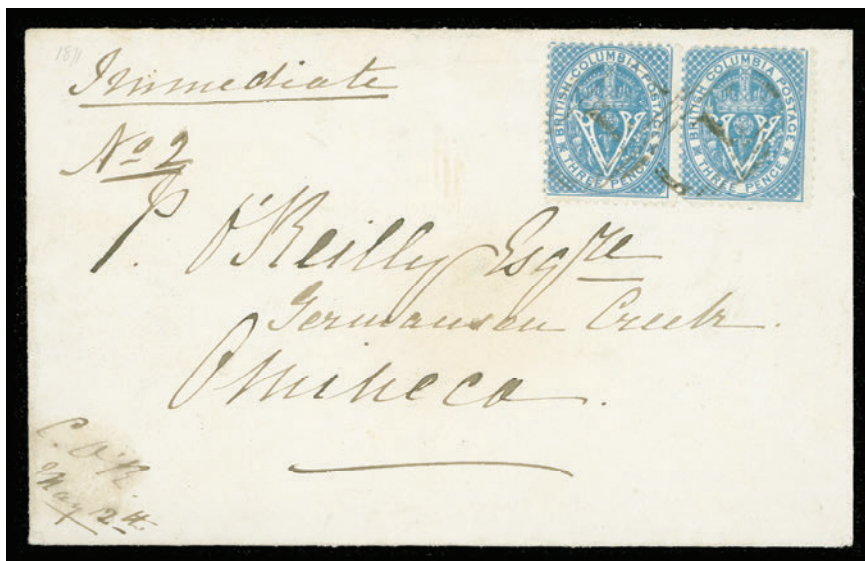 1871
Immediate
No 2
BRITISH COLUMBIA POSTAGE
THREE PENCE
BRITISH COLUMBIA POSTAGE
THREE PENCE
P. O'Reilly Esqre
Germansen Creek.
Omineca.
C. O'R
May 12th